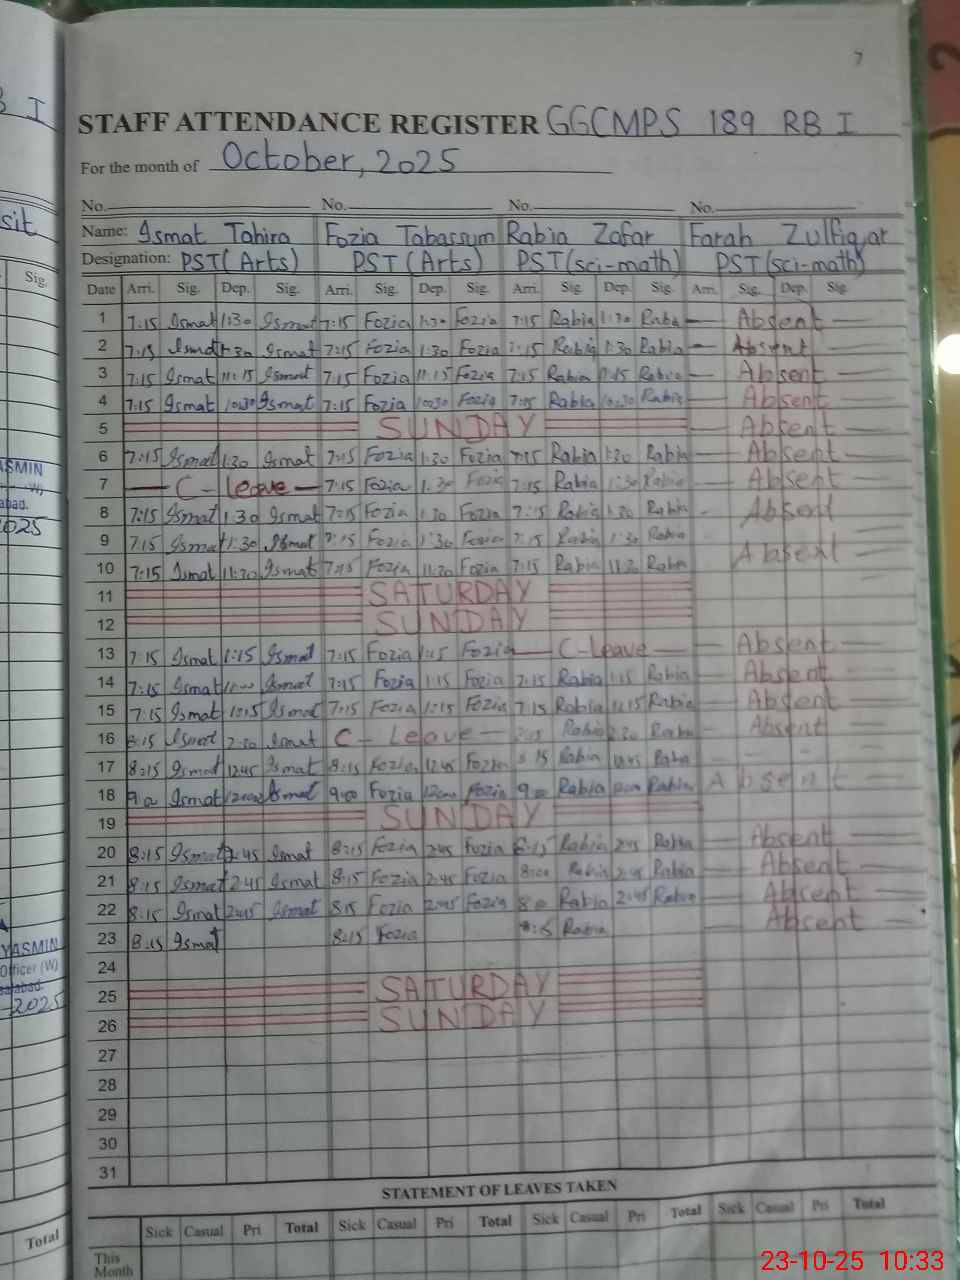 7
STAFF ATTENDANCE REGISTER GGCMPS 189 RB I
For the month of October, 2025
No. No. No. No.
Name: Ismat Tahira Fozia Tabassum Rabia Zafar Farah Zulfiqar
Designation: PST(Arts) PST(Arts) PST(sci-math) PST(sci-math)
Date Arri. Sig. Dep. Sig. Arri. Sig. Dep. Sig. Arri. Sig. Dep. Sig. Arri. Sig. Dep. Sig.
1 7:15 Ismat 1:30 Ismat 7:15 Fozia 1:30 Fozia 7:15 Rabia 1:30 Rabia Absent
2 7:15 Ismat 1:30 Ismat 7:15 Fozia 1:30 Fozia 7:15 Rabia 1:30 Rabia Absent
3 7:15 Ismat 11:15 Ismat 7:15 Fozia 11:15 Fozia 7:15 Rabia 11:15 Rabia Absent
4 7:15 Ismat 10:30 Ismat 7:15 Fozia 10:30 Fozia 7:15 Rabia 10:30 Rabia Absent
5 SUNDAY Absent
6 7:15 Ismat 1:30 Ismat 7:15 Fozia 1:30 Fozia 7:15 Rabia 1:30 Rabia Absent
7 C-Leave 7:15 Fozia 1:30 Fozia 7:15 Rabia 1:30 Rabia Absent
8 7:15 Ismat 1:30 Ismat 7:15 Fozia 1:30 Fozia 7:15 Rabia 1:30 Rabia Absent
9 7:15 Ismat 1:30 Ismat 7:15 Fozia 1:30 Fozia 7:15 Rabia 1:30 Rabia
10 7:15 Ismat 11:30 Ismat 7:15 Fozia 11:30 Fozia 7:15 Rabia 11:30 Rabia Absent
11 SATURDAY
12 SUNDAY
13 7:15 Ismat 1:15 Ismat 7:15 Fozia 1:15 Fozia C-Leave Absent
14 7:15 Ismat Ismat 7:15 Fozia 1:15 Fozia 7:15 Rabia 1:15 Rabia Absent
15 7:15 Ismat 1:15 Ismat 7:15 Fozia 1:15 Fozia 7:15 Rabia 1:15 Rabia Absent
16 8:15 Ismat 2:30 Ismat C-Leave Rabia 2:30 Rabia Absent
17 8:15 Ismat 12:45 Ismat 8:15 Fozia 12:45 Fozia 8:15 Rabia 12:45 Rabia
18 9:00 Ismat 12:00 Ismat 9:00 Fozia 12:00 Fozia 9:00 Rabia 12:00 Rabia Absent
19 SUNDAY
20 8:15 Ismat 2:45 Ismat 8:15 Fozia 2:45 Fozia 8:15 Rabia 2:45 Rabia Absent
21 8:15 Ismat 2:45 Ismat 8:15 Fozia 2:45 Fozia 8:00 Rabia 2:45 Rabia Absent
22 8:15 Ismat 2:45 Ismat 8:15 Fozia 2:45 Fozia Rabia 2:45 Rabia Absent
23 8:15 Ismat 8:15 Fozia 8:15 Rabia Absent
24
25 SATURDAY
26 SUNDAY
27
28
29
30
31
STATEMENT OF LEAVES TAKEN
Sick Casual Pri Total Sick Casual Pri Total Sick Casual Pri Total Sick Casual Pri Total
This Month
I
Sig.
YASMIN
Officer (W)
2025
Total
23-10-25 10:33